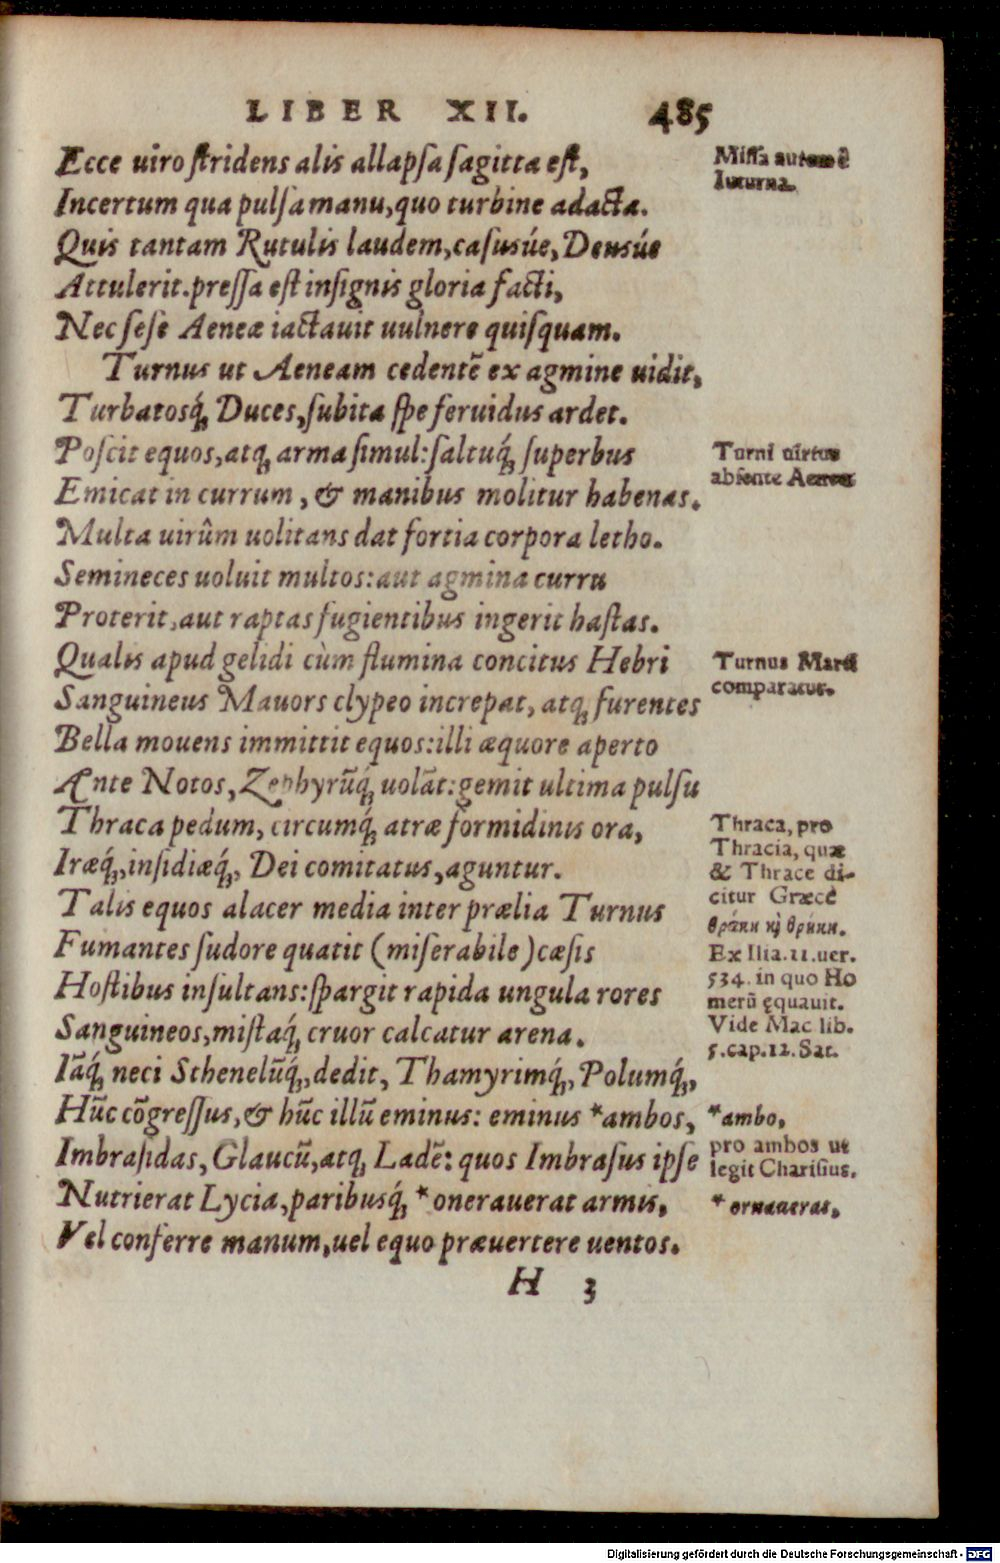 LIBER XII. 485
Ecce uiro ſtridens alis allapſa ſagitta eſt,
Incertum qua pulſa manu, quo turbine adacta.
Quis tantam Rutulis laudem, caſusúe, Deusúe
Attulerit. preſſa eſt inſignis gloria facti,
Nec ſeſe Aeneæ iactauit uulnere quiſquam.
Turnus ut Aeneam cedentẽ ex agmine uidit,
Turbatosq́; Duces, ſubita ſpe feruidus ardet.
Poſcit equos, atq; arma ſimul: ſaltuq́; ſuperbus
Emicat in currum, & manibus molitur habenas.
Multa uirûm uolitans dat fortia corpora letho.
Semineces uoluit multos: aut agmina curru
Proterit, aut raptas fugientibus ingerit haſtas.
Qualis apud gelidi cùm flumina concitus Hebri
Sanguineus Mauors clypeo increpat, atq; furentes
Bella mouens immittit equos: illi æquore aperto
Ante Notos, Zephyrũq́; uolãt: gemit ultima pulſu
Thraca pedum, circumq́; atræ formidinis ora,
Iræq́;, inſidiæq́;, Dei comitatus, aguntur.
Talis equos alacer media inter prælia Turnus
Fumantes ſudore quatit (miſerabile) cæſis
Hoſtibus inſultans: ſpargit rapida ungula rores
Sanguineos, miſtaq́; cruor calcatur arena.
Iãq́; neci Sthenelũq́;, dedit, Thamyrimq́;, Polumq́;,
Hũc cõgreſſus, & hũc illũ eminus: eminus *ambos,
Imbraſidas, Glaucũ, atq; Ladẽ: quos Imbraſus ipſe
Nutrierat Lycia, paribusq́; *onerauerat armis,
Vel conferre manum, uel equo præuertere uentos.
H 3
Miſſa autem ẽ
Iuturna.
Turni uirtus
abſente Aenea
Turnus Marti
comparatur.
Thraca, pro
Thracia, quæ
& Thrace di-
citur Græcè
θρᾴκη κỳ θρήκη.
Ex Ilia. 11. uer.
534. in quo Ho
merũ ęquauit.
Vide Mac lib.
5. cap. 12. Sat.
*ambo,
pro ambos ut
legit Chariſius.
*ornauerat,
Digitalisierung gefördert durch die Deutsche Forschungsgemeinschaft - DFG